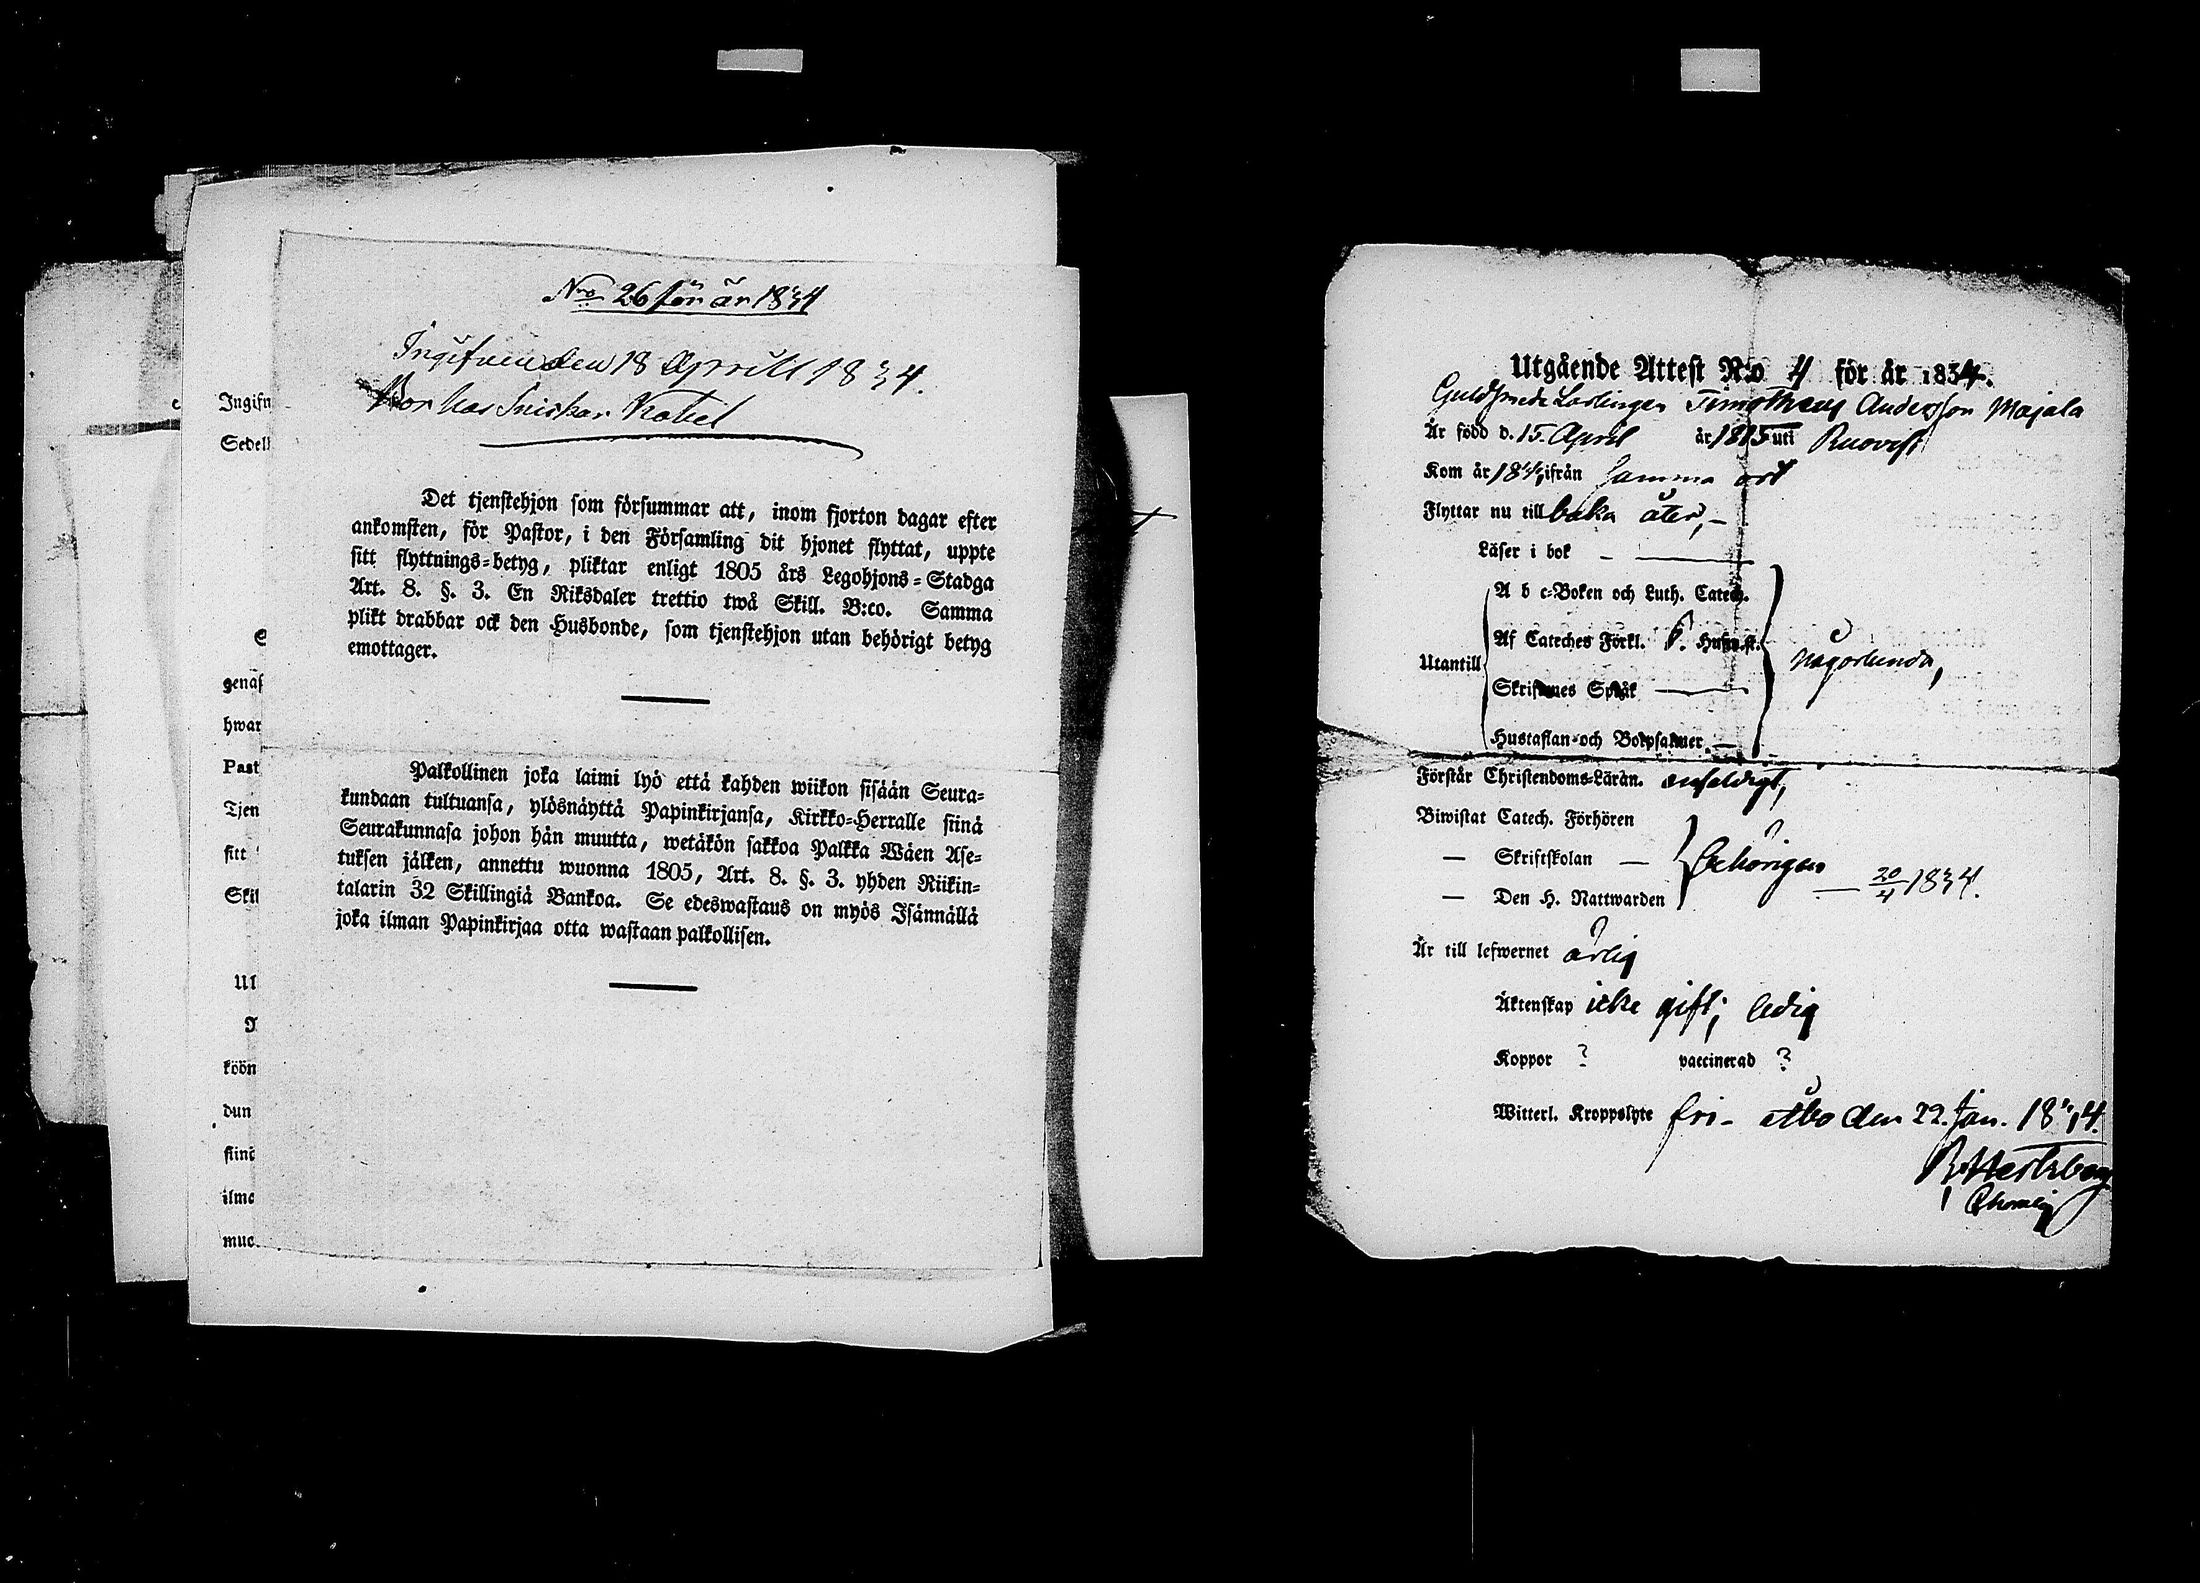 Nro 26 för år 1834
Ingifven den 18 Aprill 1834.
Bor hos Snickar Kabel
Det tjenstehjon som försummar att, inom fjorton dagar efter
ankomsten, för Pastor, i den Församling dit hjonet flyttat, uppte
sitt flyttnings-betyg, pliktar enligt 1805 års Legohjons-Stadga
Art. 8. §. 3. En Riksdaler trettio twå Skill. B:co. Samma
plikt drabbar ock den Husbonde, som tjenstehjon utan behörigt betyg
emottager.
Palkollinen joka laimi lyö että kahden wiikon sisään Seura-
kundaan tultuansa, ylösnäyttä Papinkirjansa, Kirkko-Herralle siinä
Seurakunnasa johon hän muutta, wetäkön sakkoa Palkka Wäen Ase-
tuksen jälken, annettu wuonna 1805, Art. 8. §. 3. yhden Riikin-
talarin 32 Skillingiä Bankoa. Se edeswastaus on myös Isännällä
joka ilman Papinkirjaa otta wastaan palkollisen.
Ingifn
Sedell
genast
hwar
Past
Tjen
sitt
Skil
Ut
köön
dun
siinä
ilmo
muo
Utgående Attest N:o 4 för år 1834.
Guldsmeds Lärlingen Timotheus Andersson Majala
Är född d. 15. April år 1815 uti Ruovesi
Kom år ifrån samma ort
Flyttar nu till baka åter,
Läser i bok —
A b c-Boken och Luth. Catech.
Af Cateches Förkl. Husw.st.
Utantill
någorlunda,
Skriftenes Språk
Hustaflan och Botpsalmer.
Förstår Christendoms-Lärdn. enfaldigt,
Biwistat Catech. Förhören
— Skriftskolan — behörigen
20/4 1834.
— Den H. Nattwarden
Är till lefwernet ärlig
Äktenskap icke gift; ledig
Koppor ? vaccinerad ?
Witterl. Kroppslyte fri - Åbo den 22. Jan. 1834.